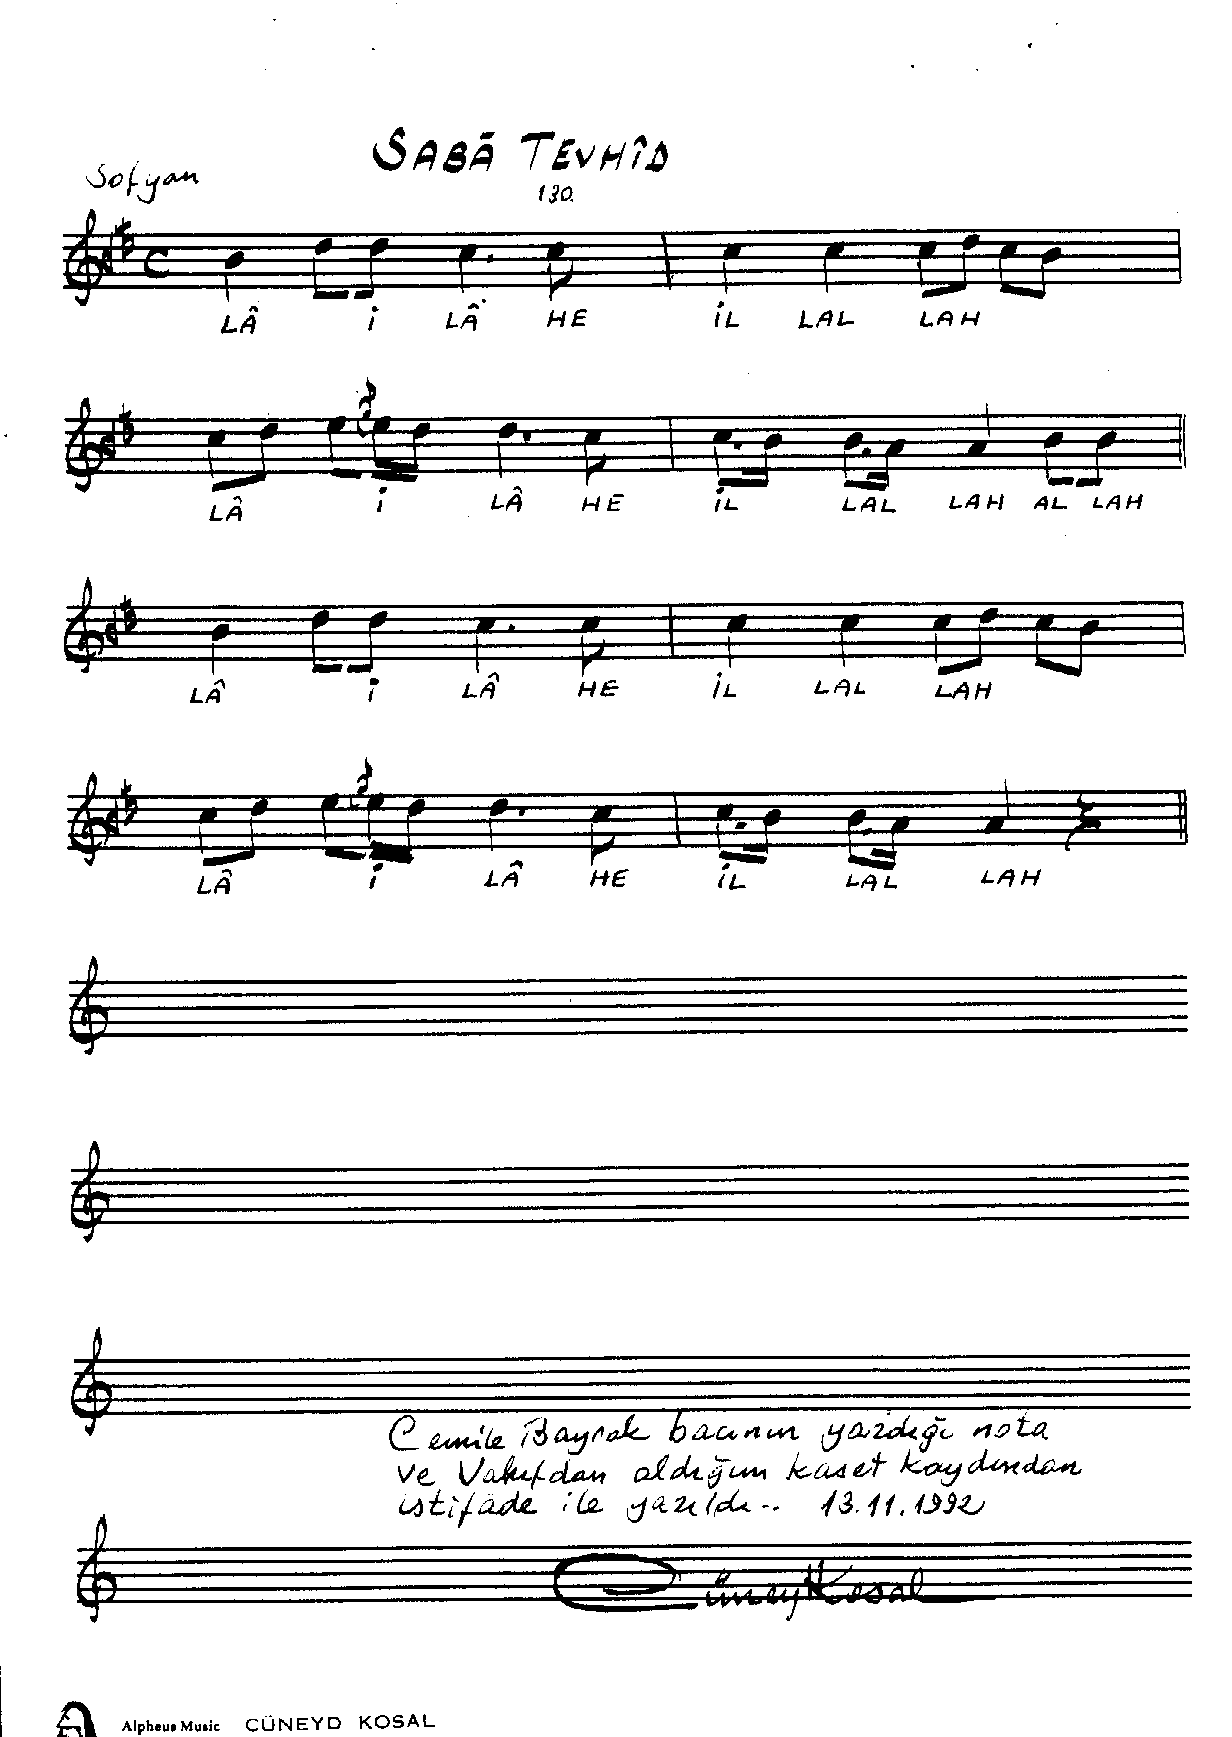 SABÂ TEVHÎD
Sofyan
130.
LÂ İ LÂ HE İL LAL LAH
LÂ İ LÂ HE İL LAL LAH AL LAH
LÂ İ LÂ HE İL LAL LAH
LÂ İ LÂ HE İL LAL LAH
Cemile Bayrak bacının yazdığı nota
ve Vakıfdan aldığım kaset kaydından
istifade ile yazıldı.. 13.11.1992
Cüneyd Kosal
Alpheus Music CÜNEYD KOSAL